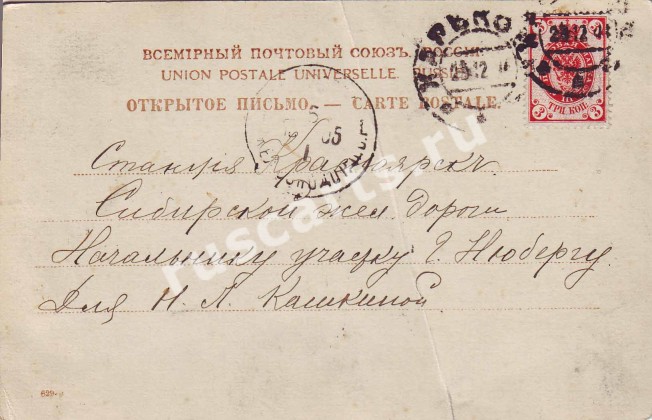 ВСЕМІРНЫЙ ПОЧТОВЫЙ СОЮЗЪ. РОССІЯ.
UNION POSTALE UNIVERSELLE. RUSSIE.
ОТКРЫТОЕ ПИСЬМО. — CARTE POSTALE.
ХАРЬКО
29 12 0
29 12 04
3 3
ТРИ КОП.
3 3
05
Станція Красноярскъ
Сибирской жел. дороги
Начальнику участку Г. Нюбергу
Для Н. Л. Кашкиной
ruscarts.ru